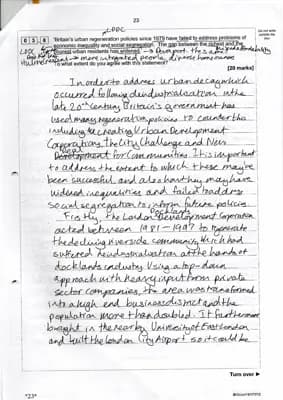 23
Do not write outside the box
LDDC
0 3 . 8 'Britain's urban regeneration policies since 1979 have failed to address problems of
economic inequality and social segregation. The gap between the richest and the
poorest urban residents has widened.'
To what extent do you agree with this statement?
[20 marks]
more integrated people, diverse home owners
In order to address urban decay which
occurred following deindustrialisation in the
late 20th Century, Britain's government has
used many regeneration policies to counter this
including creating Urban Development
Corporations, the City Challenge and New
Deal
for communities. It is important
to address the extent to which these may be
been successful, and also how they may have
widened inequalities and failed to address
social segregation to inform future policies.
Firstly, the London Docklands Development Corporation
acted between 1981-1997 to regenerate
the declining riverside community which had
suffered deindustrialisation at the hands of
docklands industry. Using a top-down
approach with heavy input from private
sector companies, the area was transformed
into a high end business district and the
population more than doubled. It furthermore
brought in the nearby University of East London
and built the London City Airport so it could be
Turn over
*23*